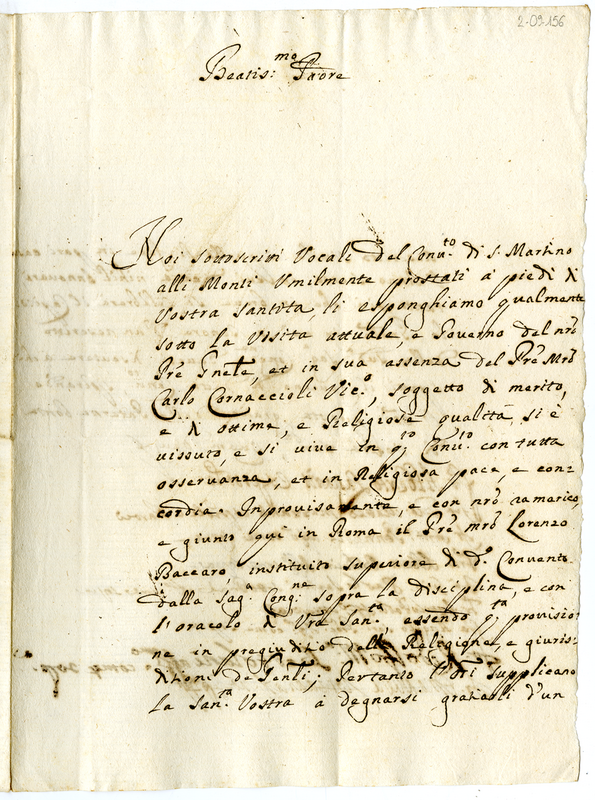 2-09-156
Beatis:mo Padre
Noi sottoscritti Vocali del Conv:to di S. Martino
alli Monti Umilmente prostati a piedi di
Vostra Santità, li esponghiamo qualmente
sotto la Visita attuale, e Governo del nro
Pre Gnele, et in sua assenza del Pre Mro
Carlo Cornaccioli Vic:o, soggetto di merito,
e di ottime, e Religiose qualità, si è
vissuto, e si vive in q:to Conv:to con tutta
osservanza, et in Religiosa pace, e con=
cordia. Improvisamente, e con nro ramarico,
e giunto qui in Roma il Pre mro Lorenzo
Baccaro, instituito superiore di d:o Convento
dalla Sag:a Cong:ne sopra la disciplina, e con
l'oracolo di Vra San:ta, essendo q:ta provisio=
ne in pregiuditio della Religione, e giuris=
ditione de Gen:li; Pertanto l'Ori supplicano
la San:ta Vostra a degnarsi gratiarli d'un